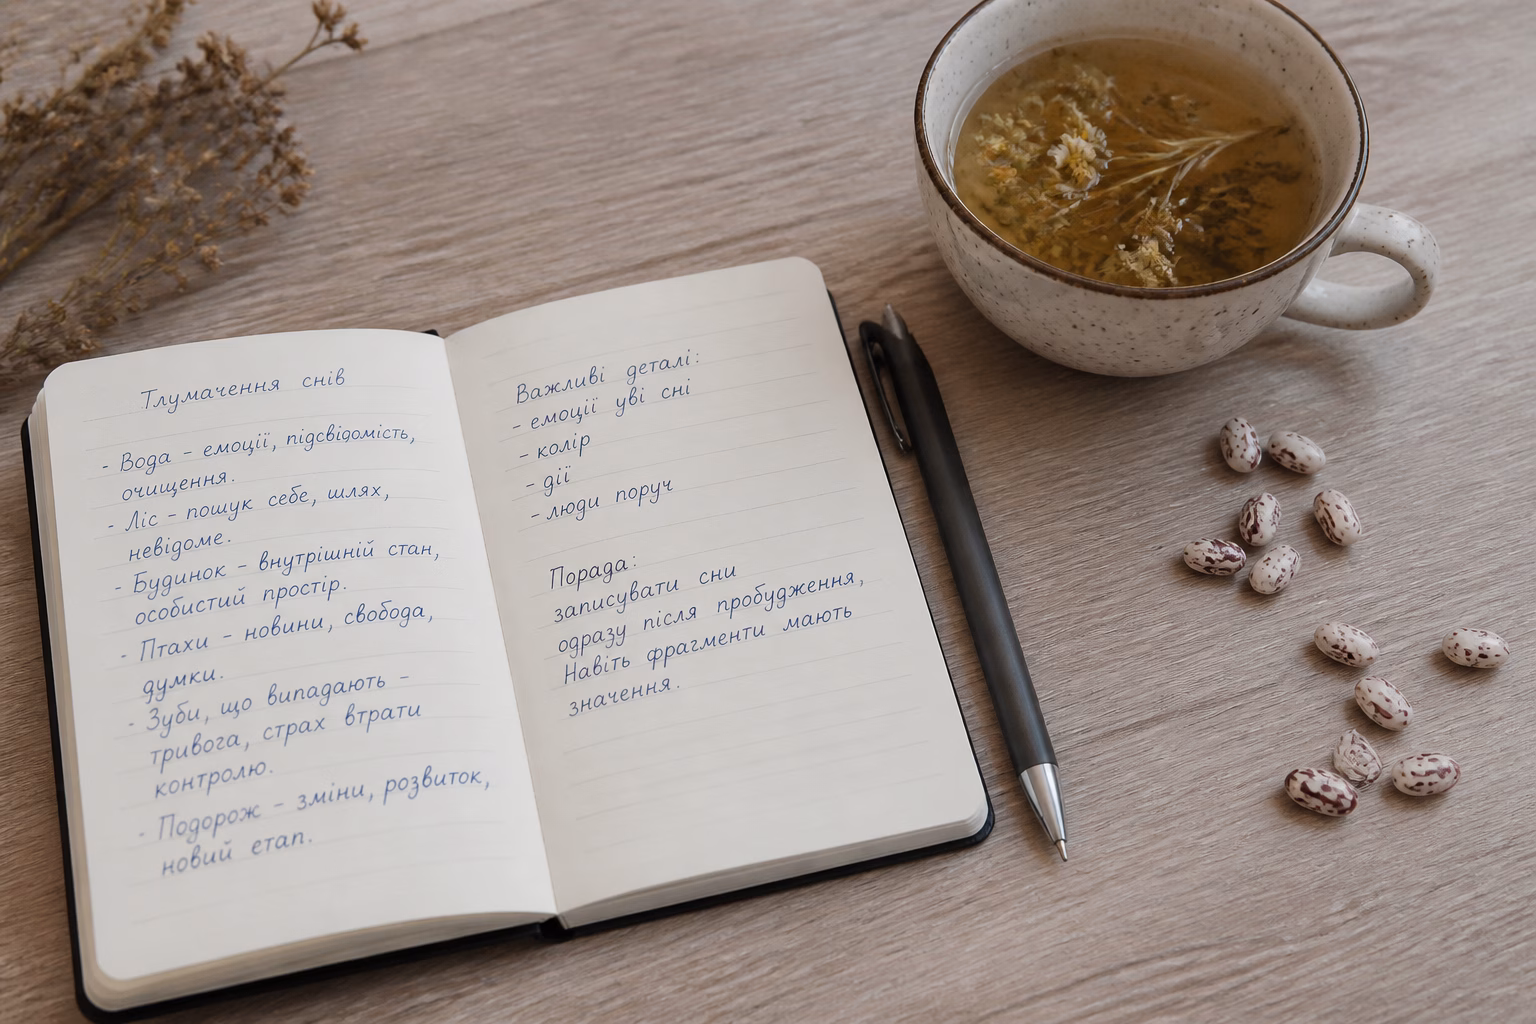 Тлумачення снів
- Вода - емоції, підсвідомість,
очищення.
- Ліс - пошук себе, шлях,
невідоме.
- Будинок - внутрішній стан,
особистий простір.
- Птахи - новини, свобода,
думки.
- Зуби, що випадають -
тривога, страх втрати
контролю.
- Подорож - зміни, розвиток,
новий етап.
Важливі деталі:
- емоції уві сні
- колір
- дії
- люди поруч
Порада:
записувати сни
одразу після пробудження,
Навіть фрагменти мають
значення.